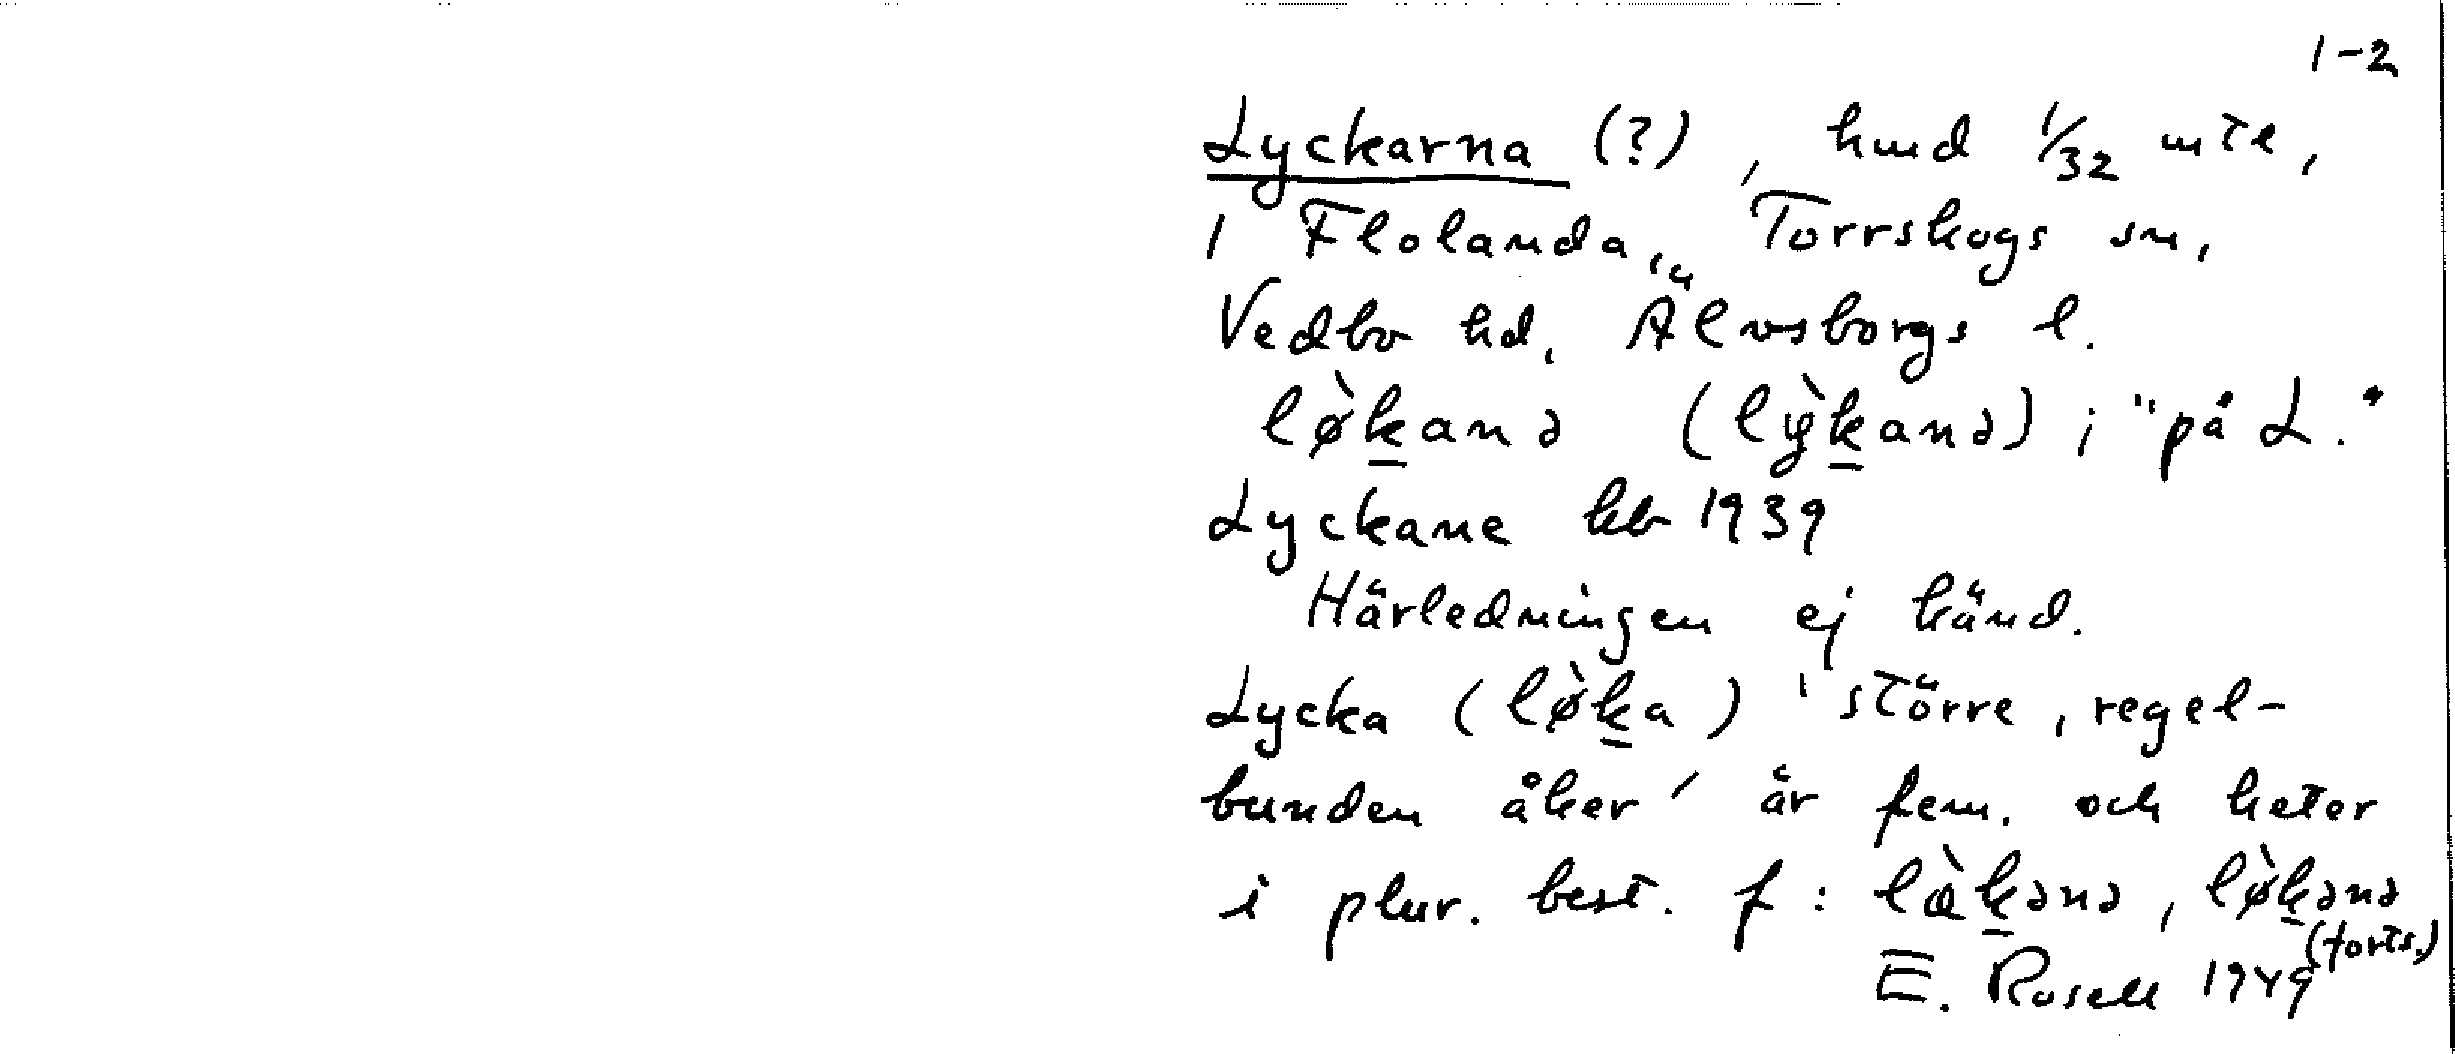 1-2
Lyckarna (?), hmd 1/32 mtl,
i Flolanda, Torrskogs sn,
Vedbo hd, Älvsborgs l.
lø̀k̲anə (lỳk̲anə) ; "på L."
Lyckane kb 1939
Härledningen ej känd.
Lycka (lø̀k̲a) 'större, regel-
bunden åker' är fem. och heter
i plur. best. f: læ̀k̲ənə, lø̀k̲ənə
(forts.)
E. Rosell 1949